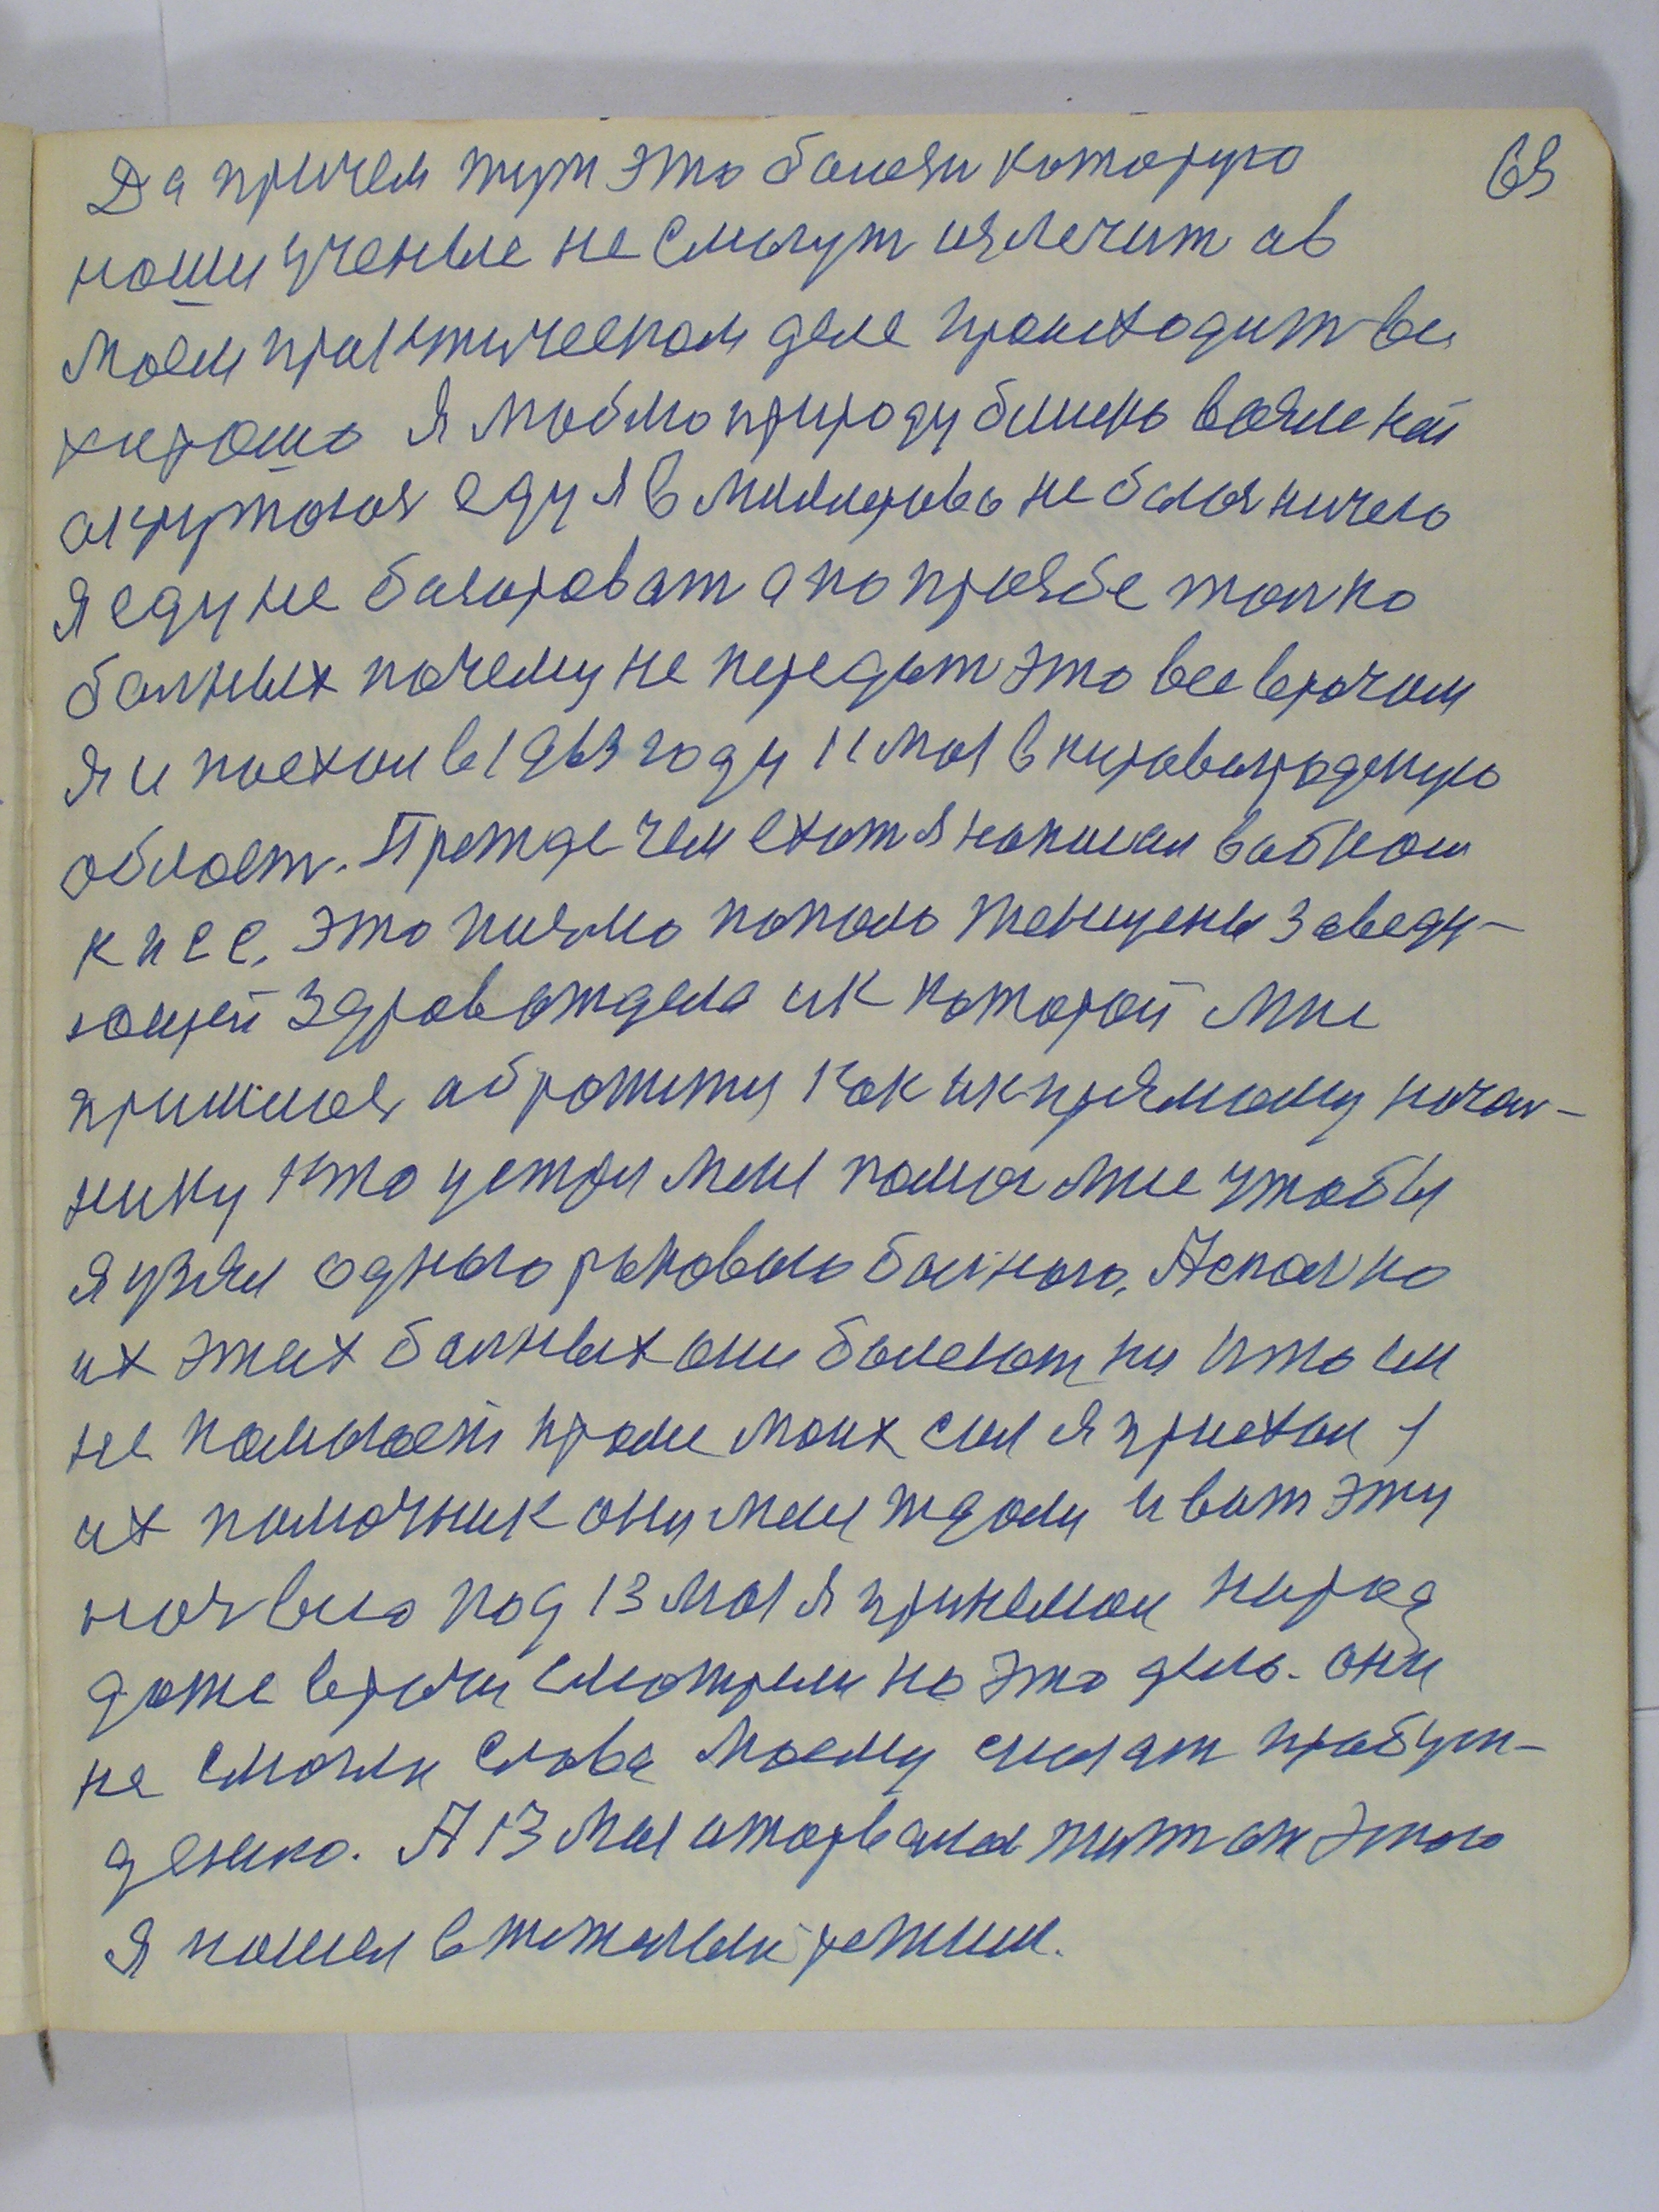 Да причем тут это болезн которую 69
наши ученые не смогут излечит а в
моем практическом деле происходит все
хорошо Я люблю природу
еду я в не боюя ничего
я еду не а по прозбе толко
болных почему не передат это все врачам
я и поехал в 1963 году 11 мая в кировоградскую
област. Прежде чем ехат я написал в обком
КПСС, это писмо попало женщены заведу-
ющей Здравотдела и к которой мне
пришлося обротится как и к прямому начал-
нику кто устрел меня мне чтобы
я узял одного ракового болного. А сколко
их этих болных они болеют ни кто им
не помогает кроме моих сил я приехал
их помочник они мене ждали и вот эту
ноч всю под 13 мая я принемал народ
даже врачи смотрели на это дело. они
не смогли слова моему сказат
А 13 мая оторвался от этого
я пошел в режим.